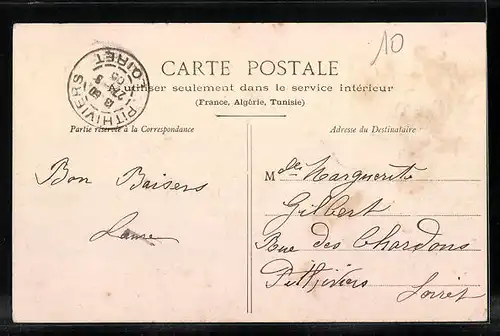 10
PITHIVIERS
LOIRET
CARTE POSTALE
A utiliser seulement dans le service intérieur
(France, Algérie, Tunisie)
Partie réservée à la Correspondance
Adresse du Destinataire :
Bon Baisers
Mdelle Marguerite
Gilbert
Rue des Chardons
Pithiviers
Loiret